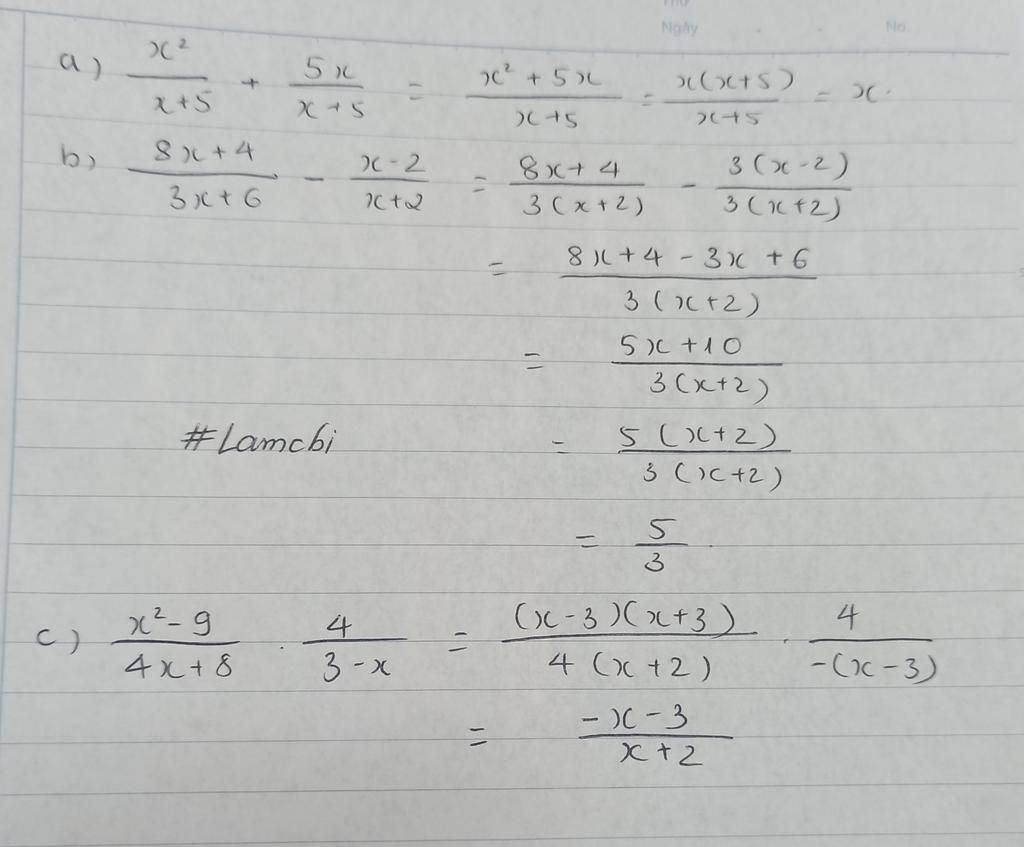 Thứ
Ngày No.
a) x²/(x+5) + 5x/(x+5) = (x²+5x)/(x+5) = x(x+5)/(x+5) = x.
b) (8x+4)/(3x+6) - (x-2)/(x+2) = (8x+4)/(3(x+2)) - 3(x-2)/(3(x+2))
= (8x+4-3x+6)/(3(x+2))
= (5x+10)/(3(x+2))
#Lamchi = 5(x+2)/(3(x+2))
= 5/3
c) (x²-9)/(4x+8) . 4/(3-x) = (x-3)(x+3)/(4(x+2)) . 4/(-(x-3))
= (-x-3)/(x+2)